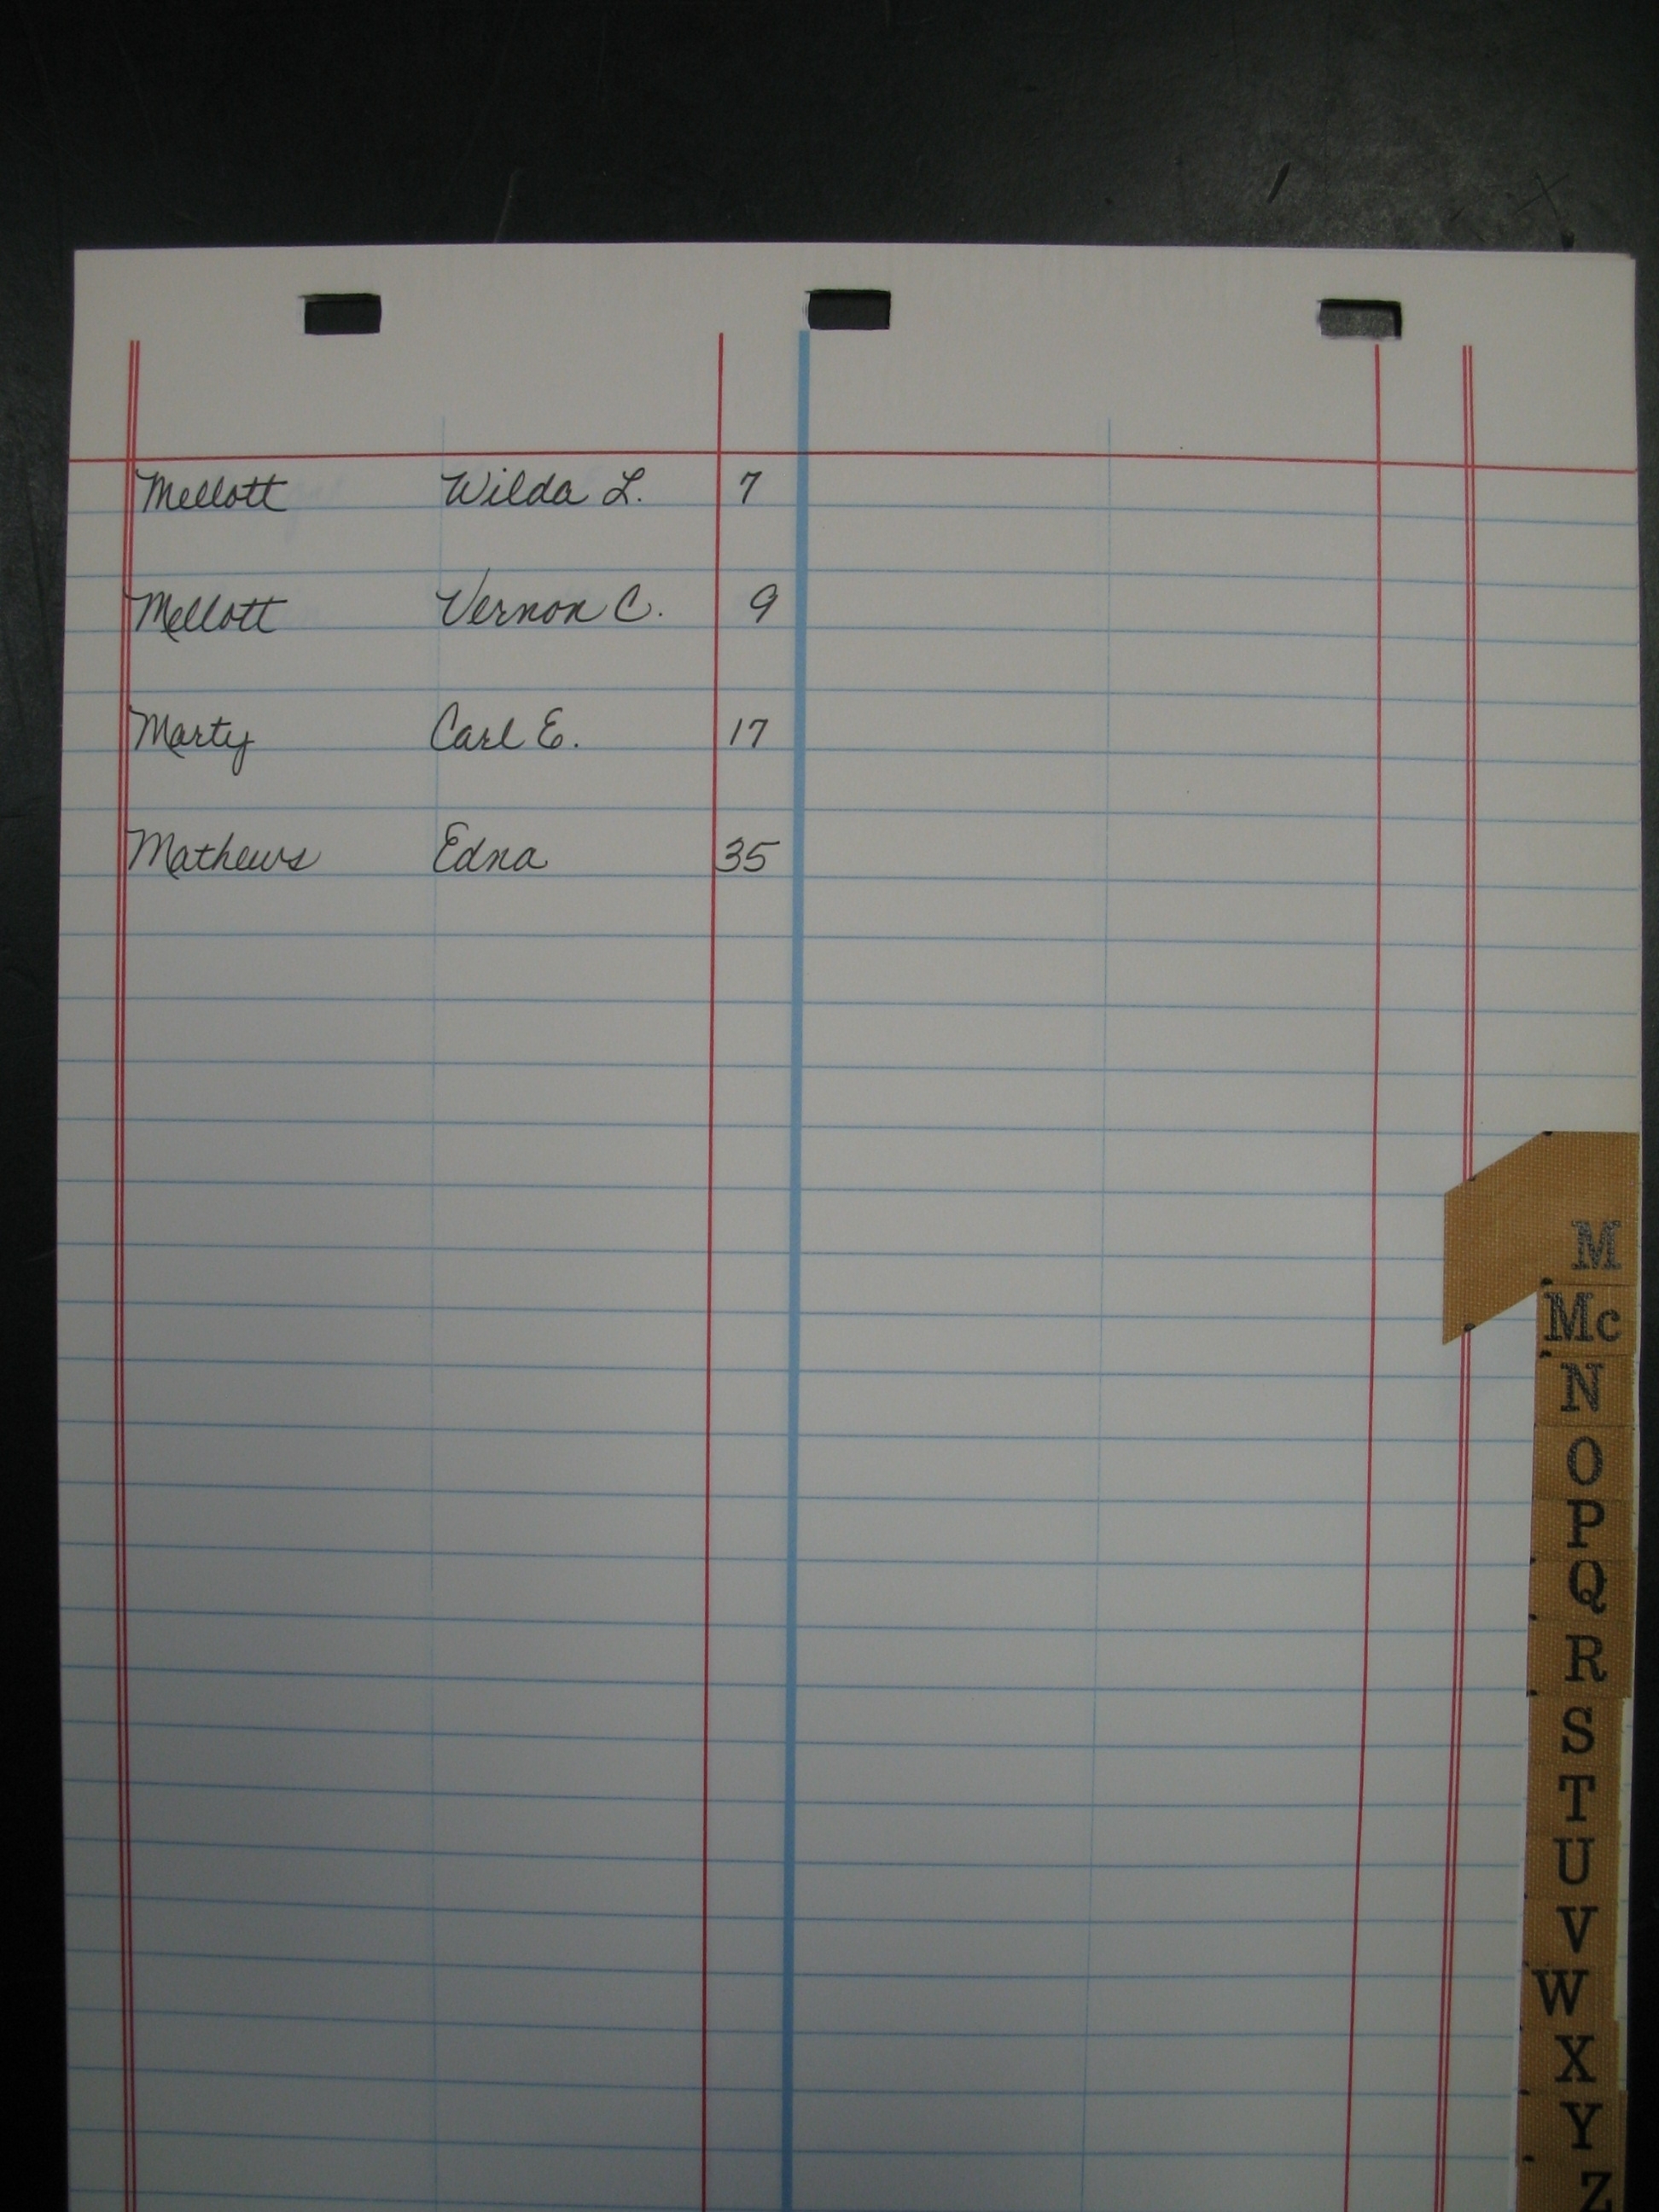 Mellott Wilda L. 7
Mellott Vernon C. 9
Marty Carl E. 17
Mathews Edna 35
M
Mc
N
O
P
Q
R
S
T
U
V
W
X
Y
Z